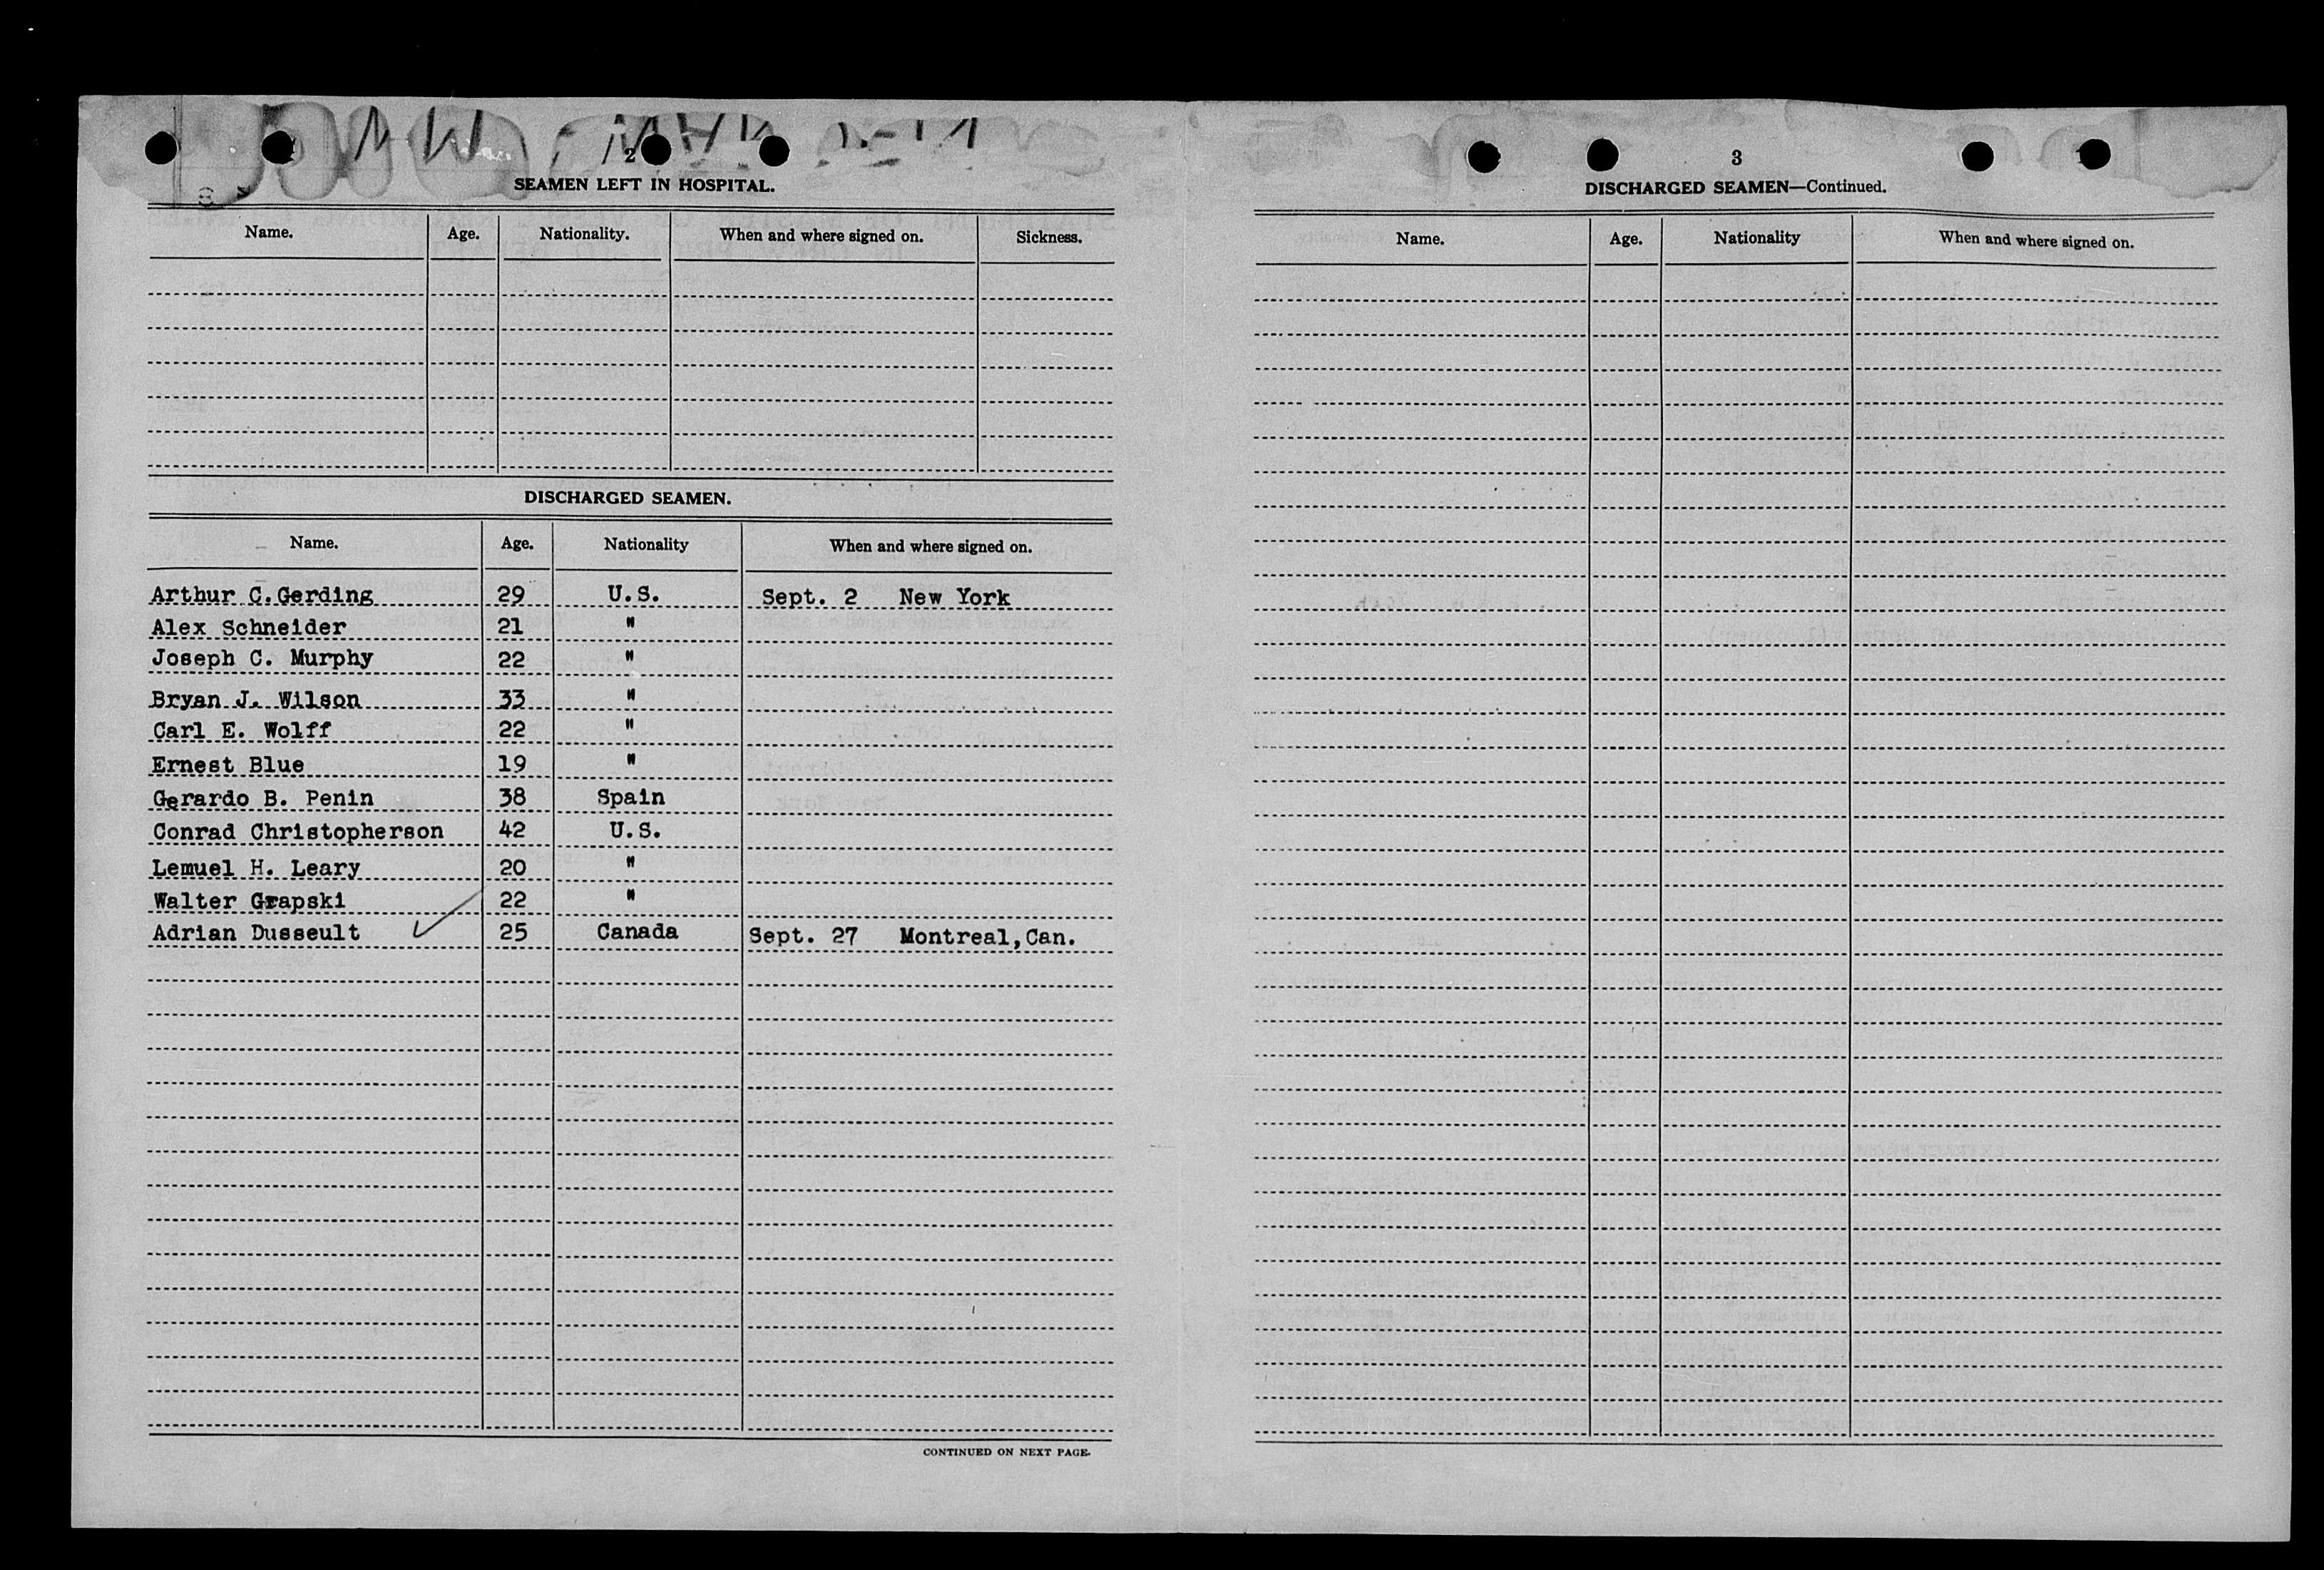 2
SEAMEN LEFT IN HOSPITAL.
Name. Age. Nationality. When and where signed on. Sickness.
DISCHARGED SEAMEN.
Name. Age. Nationality When and where signed on.
Arthur C.Gerding 29 U.S. Sept. 2 New York
Alex Schneider 21 "
Joseph C. Murphy 22 "
Bryan J. Wilson 33 "
Carl E. Wolff 22 "
Ernest Blue 19 "
Gerardo B. Penin 38 Spain
Conrad Christopherson 42 U.S.
Lemuel H. Leary 20 "
Walter Grapski 22 "
Adrian Dusseult 25 Canada Sept. 27 Montreal,Can.
CONTINUED ON NEXT PAGE.
3
DISCHARGED SEAMEN—Continued.
Name. Age. Nationality When and where signed on.